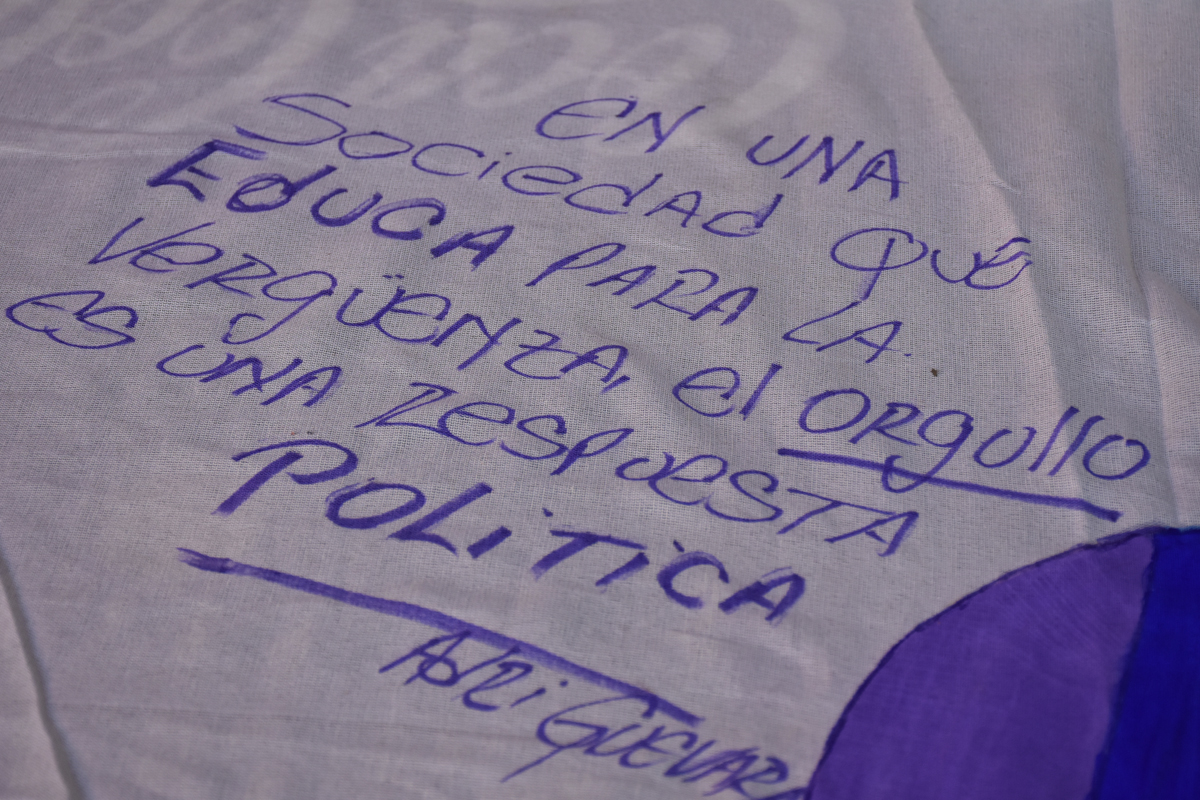 EN UNA
SociedAd QUE
EdUCA PARA LA.
VERgÜENZA, El ORgUllO
ES UNA RESPUESTA
POLiTiCA
AdRi GUEVARA